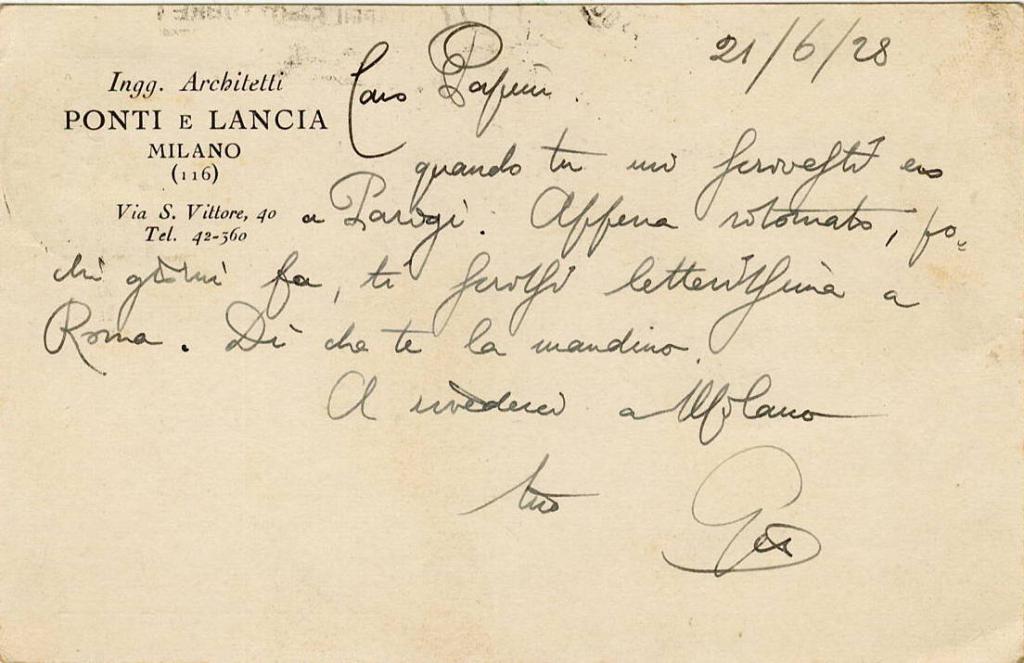 21/6/28
Ingg. Architetti
PONTI E LANCIA
MILANO
(116)
Via S. Vittore, 40
Tel. 42-360
Caro Papini.
quando tu mi scrivesti ero
a Parigi. Appena ritornato, po=
chi giorni fa, ti scrissi letterissima a
Roma. Di che te la mandino.
A rivederci a Milano
tuo
Gio